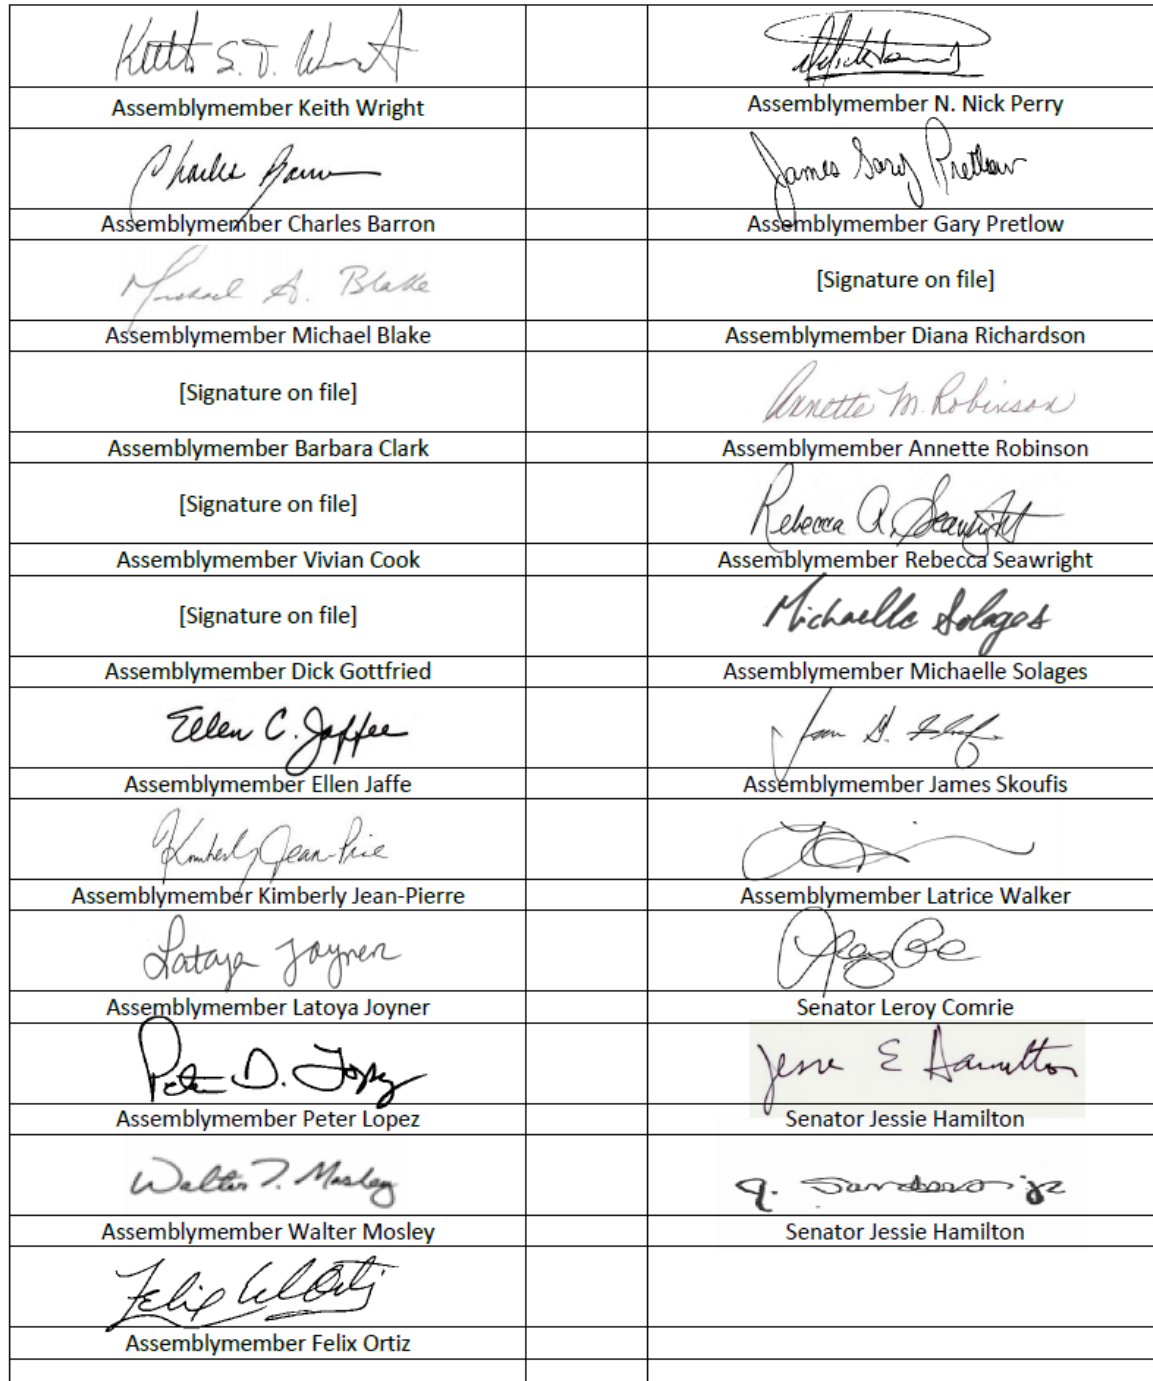 Keith S. T. Wright
Assemblymember Keith Wright
Assemblymember N. Nick Perry
Charles Barron
James Gary Pretlow
Assemblymember Charles Barron
Assemblymember Gary Pretlow
Michael A. Blake
[Signature on file]
Assemblymember Michael Blake
Assemblymember Diana Richardson
[Signature on file]
Annette M. Robinson
Assemblymember Barbara Clark
Assemblymember Annette Robinson
[Signature on file]
Rebecca A. Seawright
Assemblymember Vivian Cook
Assemblymember Rebecca Seawright
[Signature on file]
Michaelle Solages
Assemblymember Dick Gottfried
Assemblymember Michaelle Solages
Ellen C. Jaffee
Assemblymember Ellen Jaffe
Assemblymember James Skoufis
Kimberly Jean-Pierre
Assemblymember Kimberly Jean-Pierre
Assemblymember Latrice Walker
Latoya Joyner
Assemblymember Latoya Joyner
Senator Leroy Comrie
Peter D. Lopez
Jesse E Hamilton
Assemblymember Peter Lopez
Senator Jessie Hamilton
Walter T. Mosley
J. Sanders jr
Assemblymember Walter Mosley
Senator Jessie Hamilton
Felix W Ortiz
Assemblymember Felix Ortiz